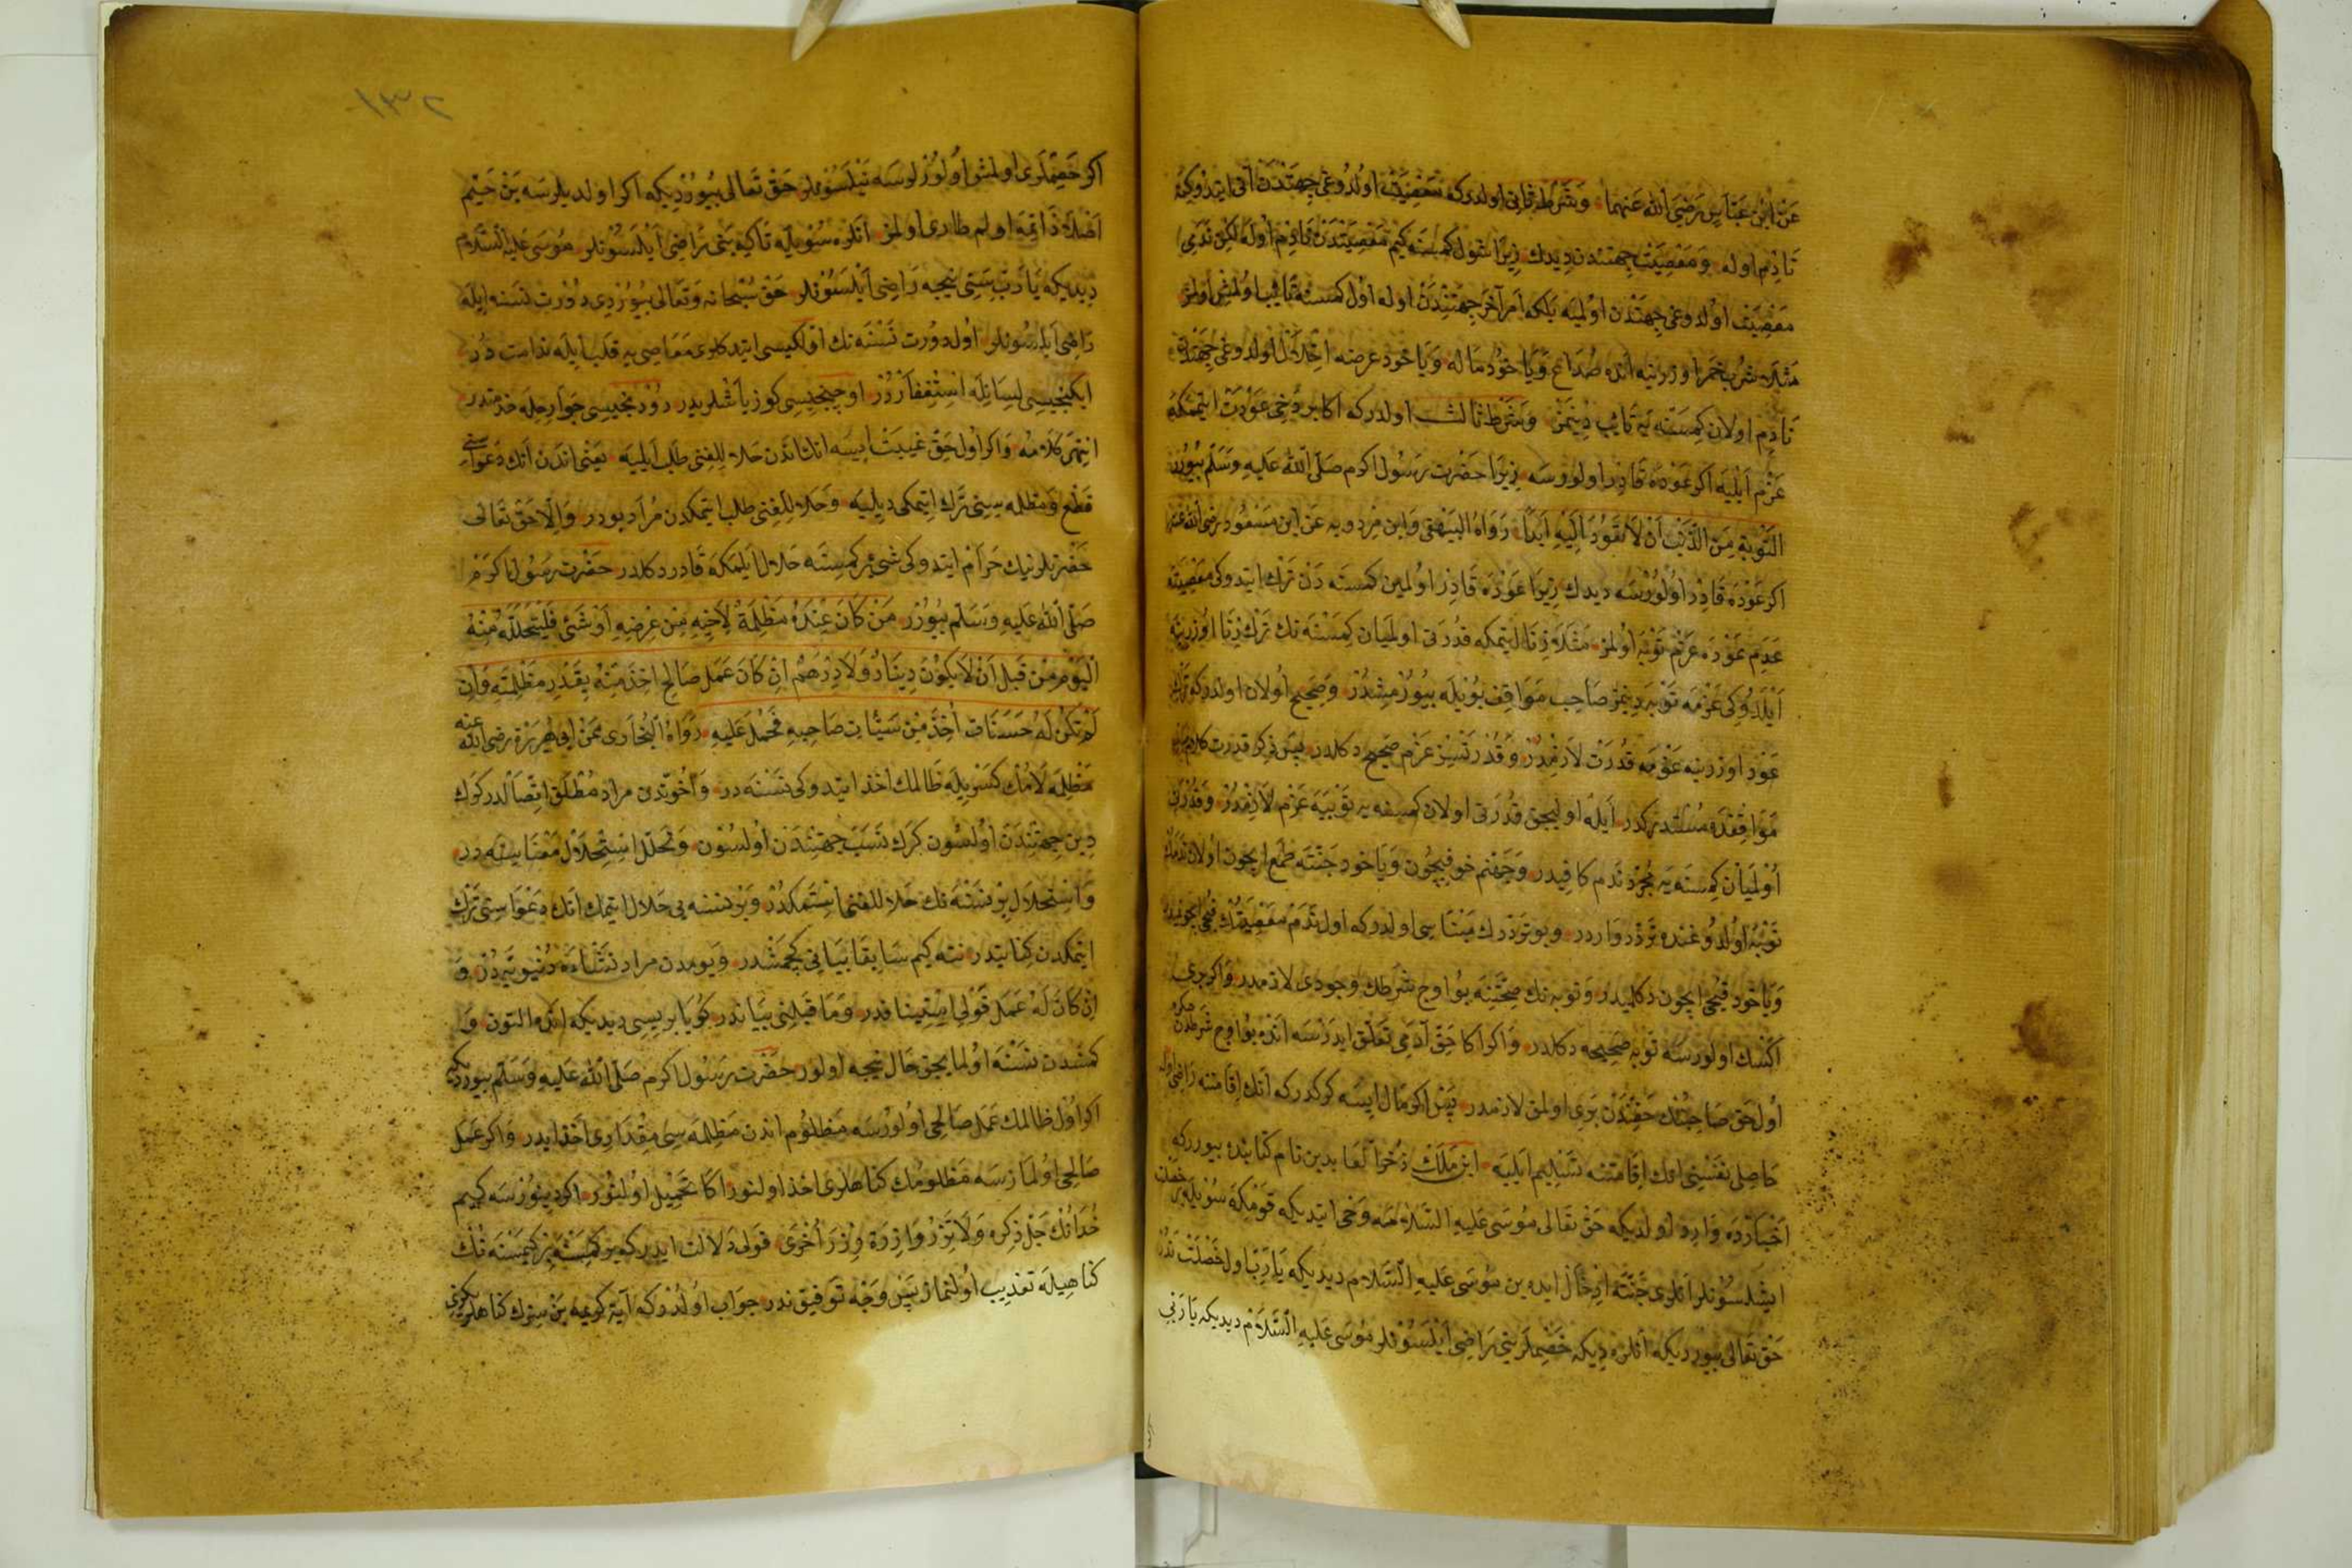 عَنْ ابْنِ عَبَّاسٍ رَضِيَ اللّٰهُ عَنْهُمَا وَشَرْطِ ثَانِى اولدركه مَعْصِيَتْ اولدوغى جِهَتْدَنْ آنى ايتدوكنه
نَادِم اوله وَمَعْصِيَتْ جِهَتندن ديدك زِيرَا شول كمسنه كيم مَعْصِيَتْدَنْ نَادِم اوله لكن نَدَمِى
مَعْصِيَتْ اولدوغى جِهَتْدن اولميه بلكه اَمرِ آخَر جِهَتِنْدَنْ اوله اول كمسنه تَائِب اولمش اولمز
مَثَلَا شرب خمر اوزرينه انده صُدَاعْ وَيَا خود ماله وَيَا خود عرضه اِخْلَال اولدوغى جِهَتْدَنْ
نَادِم اولان كمسنه يه تَائِب دِينمز وشرط ثالث اولدركه اكا بر دخى عَوْدَت ايتمكه
عَزْم اَيلميه اكر عَوْدَه قَادِر اولورسه زِيرَا حَضْرت رَسُول اكرم صَلَّى اللّٰهُ عَلَيهِ وَسَلَّم بُيُورُر
التَّوْبَة مِنَ الذَّنْبِ اَنْ لَا تَعُودَ اِلَيْهِ اَبَدًا رَوَاهُ البَيْهَقى وَابن مِرْدويه عَن ابن مَسْعُود رضى اللّٰه عنه
اكر عَوْدَه قَادِر اولورسه ديدك زِيرَا عَوْدَه قَادِر اولمين كمسنه دن ترك ايتدوكى مَعْصِيَته
عَدَم عَوْدَه عَزْم تَوْبَه اولمز مَثَلَا زِنَا ايتمكه قدرتى اولميان كمسنه نك ترك زِنَا اوزرينه
اَيلدوكى عَزْمه تَوْبه دِينمز صَاحِب مَوَاقِف بويله بيورمشدر وَصَحِيح اولان اولدركه ترك
عَوْد اوزرينه عَزْمه قدرت لازمدر وَقدرتسيز عَزْم صَحِيح دكلدر پس ذكر قدرت كلام
مَوَاقِفده مُسْتَدْرَكدر ايله اوليجق قدرتى اولان كمسنه يه تَوْبَيه عَزْم لازمدر وَقدرتى
اولميان كمسنه يه مُجَرَّد نَدَم كافيدر وَجَهَنَّم خوفيچون وَيَا خود جَنَّته طمع ايچون اولان نَدَمك
تَوْبَه اولدوغنده تَرَدُّد واردر وبو تَرَدُّدك مَبْنَاسى اولدركه اول نَدَم مَعْصِيَتْك قُبْحى ايچونميدر
وَيَا خود قُبْحى ايچون دكلميدر وَتوبه نك صِحَّتِنه بو اوج شرطك وجودى لازمدر وَاكر برى
اكسك اولورسه توبه صَحِيحه دكلدر وَاكر اكا حَقّ آدَمِى تَعَلُّق ايدرسه انده بو اوج شرطدن صكره
اول حَق صَاحِبنك حَقِّنْدَنْ بَرِى اولمق لازمدر پَسْ اكر مَال ايسه كركدركه انك اِقَامتنه رَاضِى اوله
حَاصِلى نفسنى انك اِقَامتنه تَسْلِيم ايليه ابن مَلَك ذُخْرُ العَابدين نام كتابنده بيورركه
اَخْبَارده وارد اولديكه حَقْ تَعَالى مُوسَى عَلَيهِ السَّلَامه وَحى ايتديكه قومكه سويله بر خصلت
ايشلسونلر انلرى جَنَّته اِدْخَال ايده ين مُوسَى عَلَيهِ السَّلَام ديديكه يَا رَبّ اول خَصْلَت نَدُر
حَقْ تَعَالى بيورديكه انلره ديكه خَصْملرينى رَاضِى اَيْلَسُونلر مُوسَى عَلَيهِ السَّلَام ديديكه يَا رَبِّى
١٣٢
اكر خَصْملَرى اولمش اولورلرسه نَيْلَسُونلر حَقْ تَعَالى بُيُورديكه اكر اولديلرسه بَنْ حَيّم
اَصْلَا ذَاتِمَه اولم طارى اولمز انلره سويله تَاكيه بَنى رَاضِى اَيْلَسُونلر مُوسَى عَلَيهِ السَّلَام
دِيديكه يَا رَبّ سَنى نيجه رَاضِى اَيْلَسُونلر حَقْ سُبْحَانَهُ وَتَعَالى بُيُوردى دورت نَسْنه ايله
رَاضِى اَيلسونلر اول دورت نَسْنَه نك اولكيسى ايتدكلرى مَعَاصِى يه قَلْب ايله نَدَامت دُر
ايكنجيسى لِسَانله اِسْتِغْفَارْدُر اوچنجيسى كوز ياشلريدر دوردنجيسى جَوَارحله خدمتدر
انتهى كلامه وَاكر اول حَقّ غيبت ايسه اندن حَلَاللغنى طلب ايليه يَعْنى اندن انك دَعْوَاسنى
قَطْع وَمظلمه سنى ترك ايتمكى ديليه وَحَلَاللغنى طلب ايتمكدن مُرَاد بودر وَاِلَّا حَقْ تَعَالى
حَضْرتلرينك حَرَام ايتدوكى شىء بر كمسنه حَلَال ايلمكه قَادر دكلدر حَضْرت رَسُول اكرم
صَلَّى اللّٰهُ عَلَيهِ وَسَلَّم بُيُورُر مَنْ كَانَ عِنْدَهُ مَظْلِمَةٌ لِاَخِيهِ مِنْ عِرْضِهِ اَوْ شَىْءٍ فَلْيَتَحَلَّلْهُ مِنْهُ
الْيَوْمَ مِنْ قَبْلِ اَنْ لَا يَكُونَ دِينَارٌ وَلَا دِرْهَمٌ اِنْ كَانَ عَمَل صَالِح اُخِذَ مِنْهُ بِقَدْرِ مَظْلِمَتِهِ وَاِنْ
لَمْ تَكُنْ لَهُ حَسَنَات اُخِذَ مِنْ سَيِّئات صَاحِبِهِ فَحُمِلَ عَلَيهِ رَوَاهُ الْبُخَارى عَنْ اَبى هُرَيْرَة رضى اللّٰه عنه
مَظْلِمَه لَامُك كَسْريله ظَالمك اخذ ايتدوكى نَسْنَه در وَاُخُوَّتدن مراد مُطْلَق اتِّصَالدر كرك
دِين جِهَتِنْدَنْ اولسون كرك نَسَب جِهَتِنْدَن اولسون وَتَحَلُّل اسْتِحْلَال مَعْنَاسنه در
وَاسْتِحْلَال بر نَسْنَه نك حَلَاللغنى اِسْتَمكدُر وَبر نسنه يى حَلَال ايتمك انك دَعْوَاسنى تَرْك
ايتمكدن كنايتدر نته كيم سَابقًا بَيَانى كچمشدر وَيومدن مراد نَشْاَةِ دُنْيَويَه دُر وَ
اِنْ كَانَ لَهُ عَمَل قَولى اِسْتِينَافدر وَمَا قَبلنى بَيَاندر كويَا بريسى ديديكه انده التون وَ
كمشدن نسنه اولمايجق حَال نيجه اولور حَضْرت رَسُول اكرم صَلَّى اللّٰهُ عَلَيهِ وَسَلَّم بيورديكه
اكر اول ظالمك عَمَل صَالحى اولورسه مَظلوم اندن مَظلمه سى مِقْدَارى اَخْذ ايدر وَاكر عَمَل
صَالحى اولمازسه مَظلومك كناهلرى اخذ اولنور اكا تَحْمِيل اولنور اكر دينورسه كيم
خُدَانُك جَلَّ ذِكره وَلَا تَزِرُ وَازِرَةٌ وِزْرَ اُخْرَى قَولى دَلَالت ايدركه بر كمسنه بر كيمسنه نُك
كناهيله تعذيب اولنماز پَسْ وَجه تَوفيق ندر جواب اولدركه آيت كريمه بَنْ سزك كناهلريكزى